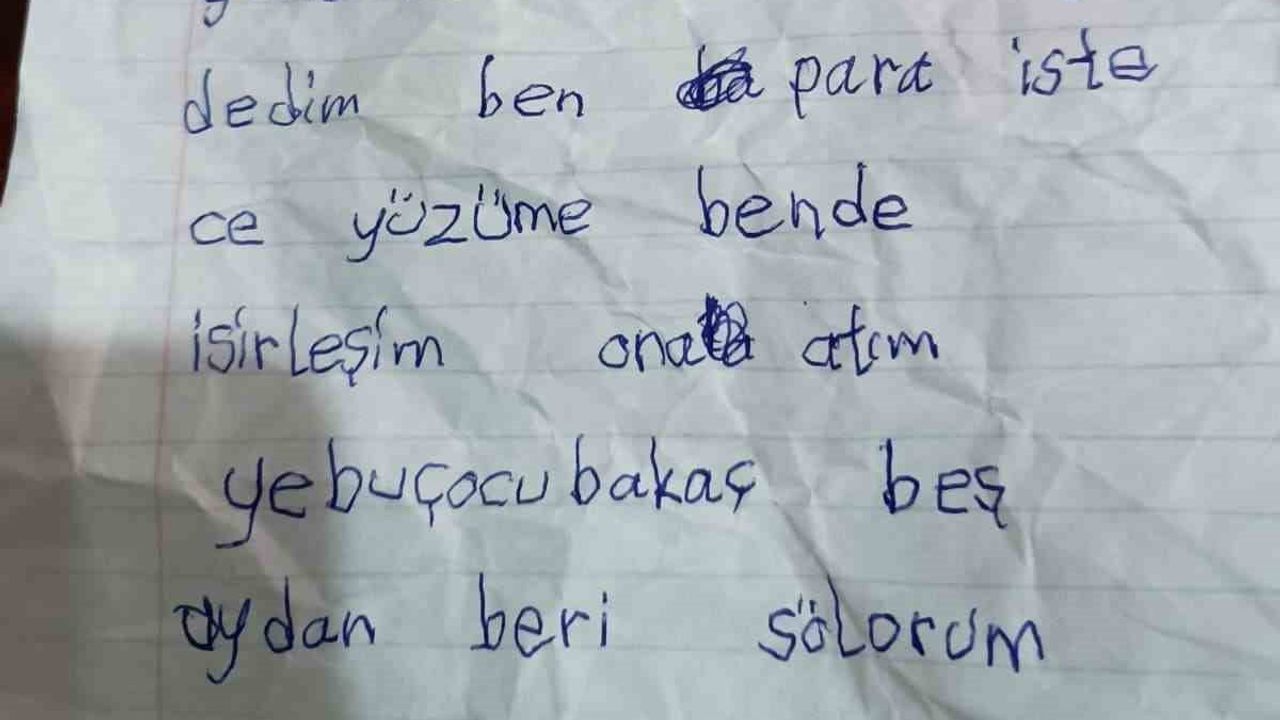 dedim ben para iste
ce yüzüme bende
isirleşim ona atım
yebuçocubakaç beş
aydan beri sölorum